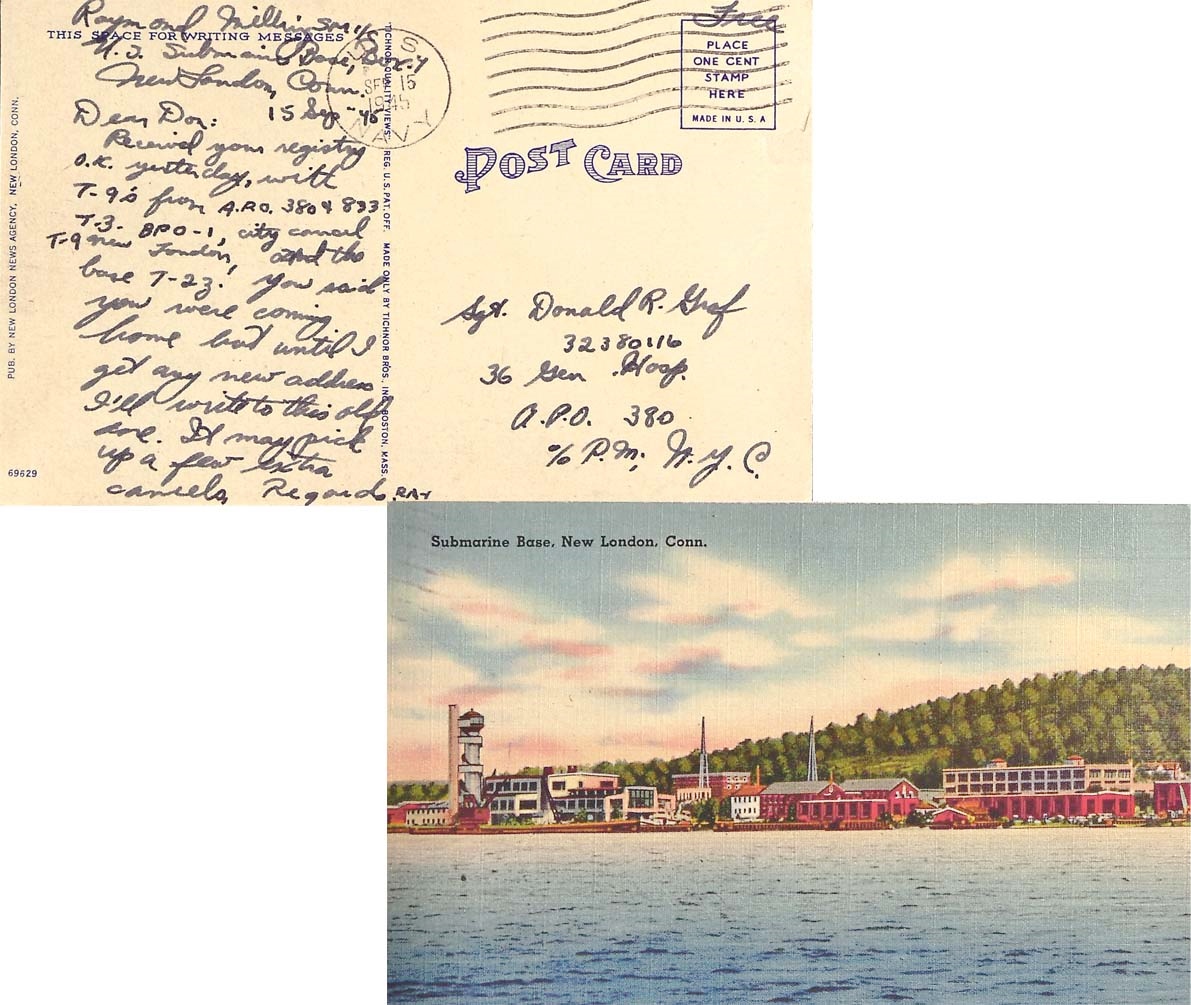 Raymond Millin SM 1/c
THIS SPACE FOR WRITING MESSAGES
U.S. Submarine Base, Box 4
New London, Conn.
15 Sep "45
Dear Don:
Received your registry
O.K. yesterday, with
T-9's from A.P.O. 380 & 833
T-3. BPO-1, city cancel
T-9 new London, and the
base T-23! You said
you were coming
home but until I
get any new address
I'll write to this old
one. It may pick
up a few extra
cancels, Regards, RAY
PUB. BY NEW LONDON NEWS AGENCY, NEW LONDON, CONN.
69629
TICHNOR QUALITY VIEWS, REG. U.S. PAT. OFF. MADE ONLY BY TICHNOR BROS., INC., BOSTON, MASS.
U. S.
SEP 15
1945
NAVY
Free
PLACE
ONE CENT
STAMP
HERE
MADE IN U. S. A
POST CARD
Sgt. Donald R. Graf
32380116
36 Gen. Hosp.
A.P.O. 380
% P.M., N.Y.C.
Submarine Base, New London, Conn.